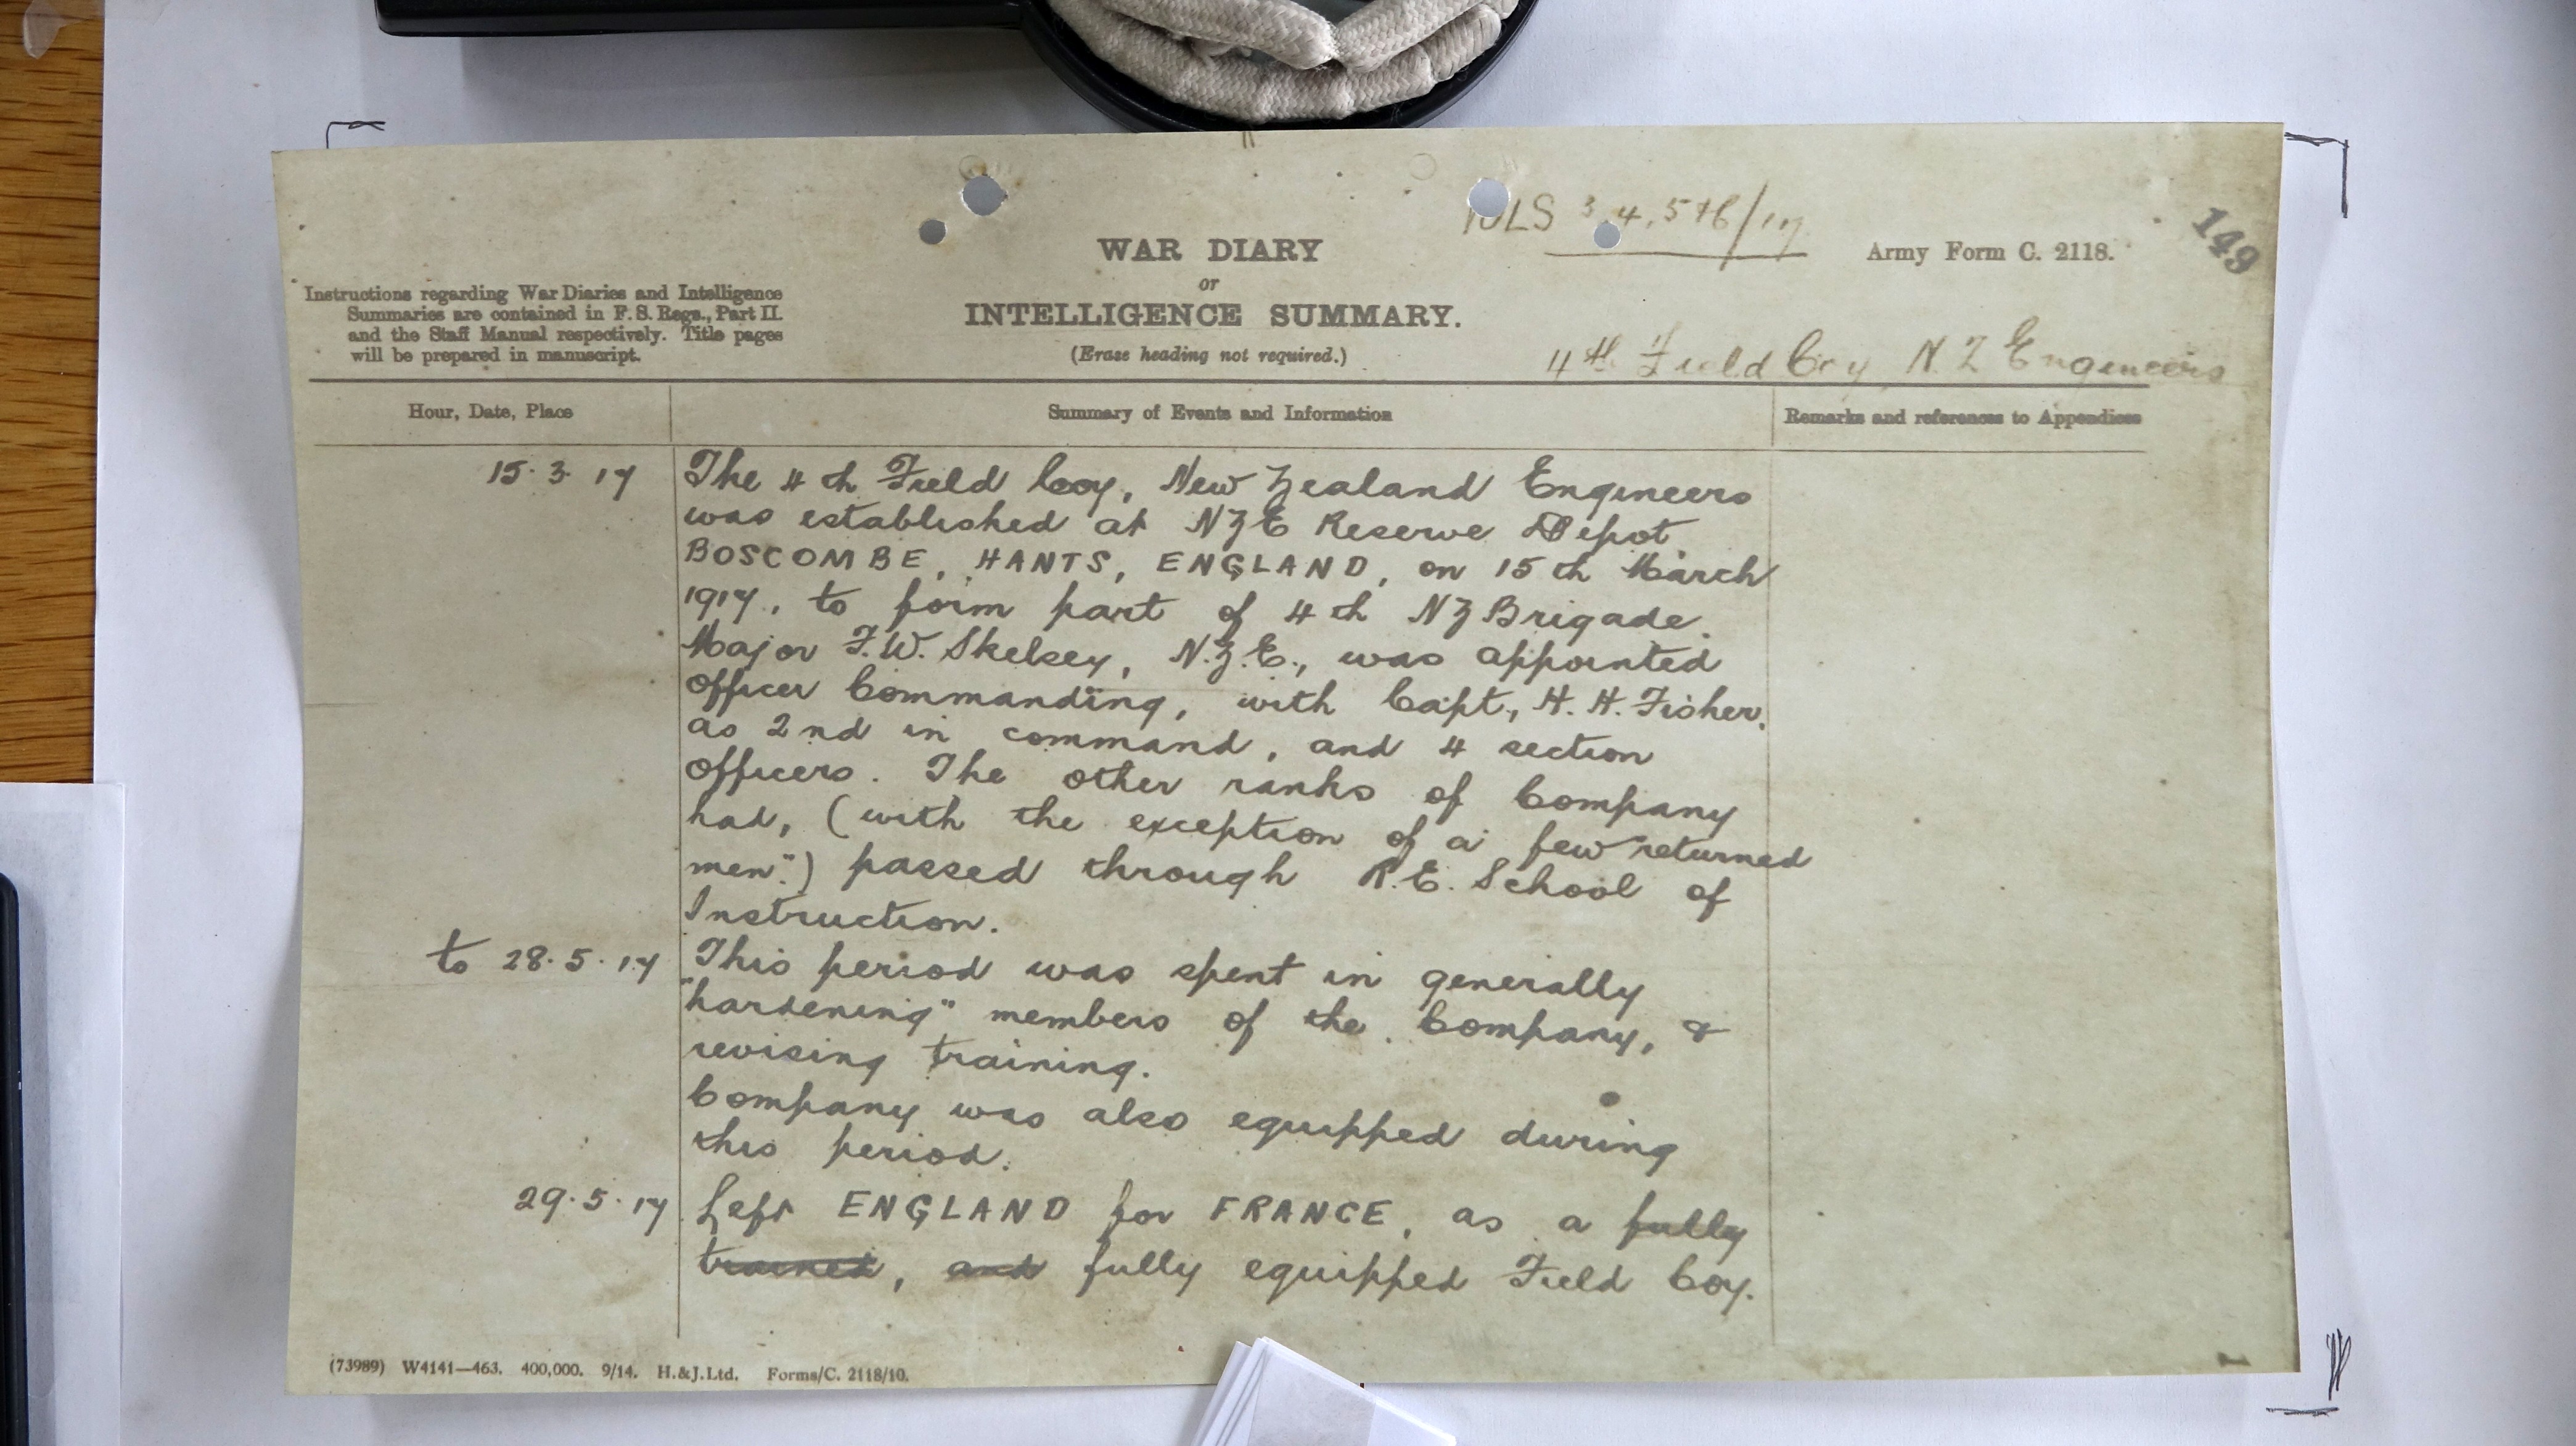 149
WAR DIARY
or
INTELLIGENCE SUMMARY.
(Erase heading not required.)
Army Form C. 2118.
Instructions regarding War Diaries and Intelligence
Summaries are contained in F. S. Regs., Part II.
and the Staff Manual respectively. Title pages
will be prepared in manuscript.
4th Field Coy N. Z Engineers
Hour, Date, Place
Summary of Events and Information
Remarks and references to Appendices
15. 3. 17
The 4th Field Coy, New Zealand Engineers
was established at NZE Reserve Depot
BOSCOMBE, HANTS, ENGLAND, on 15th March
1917, to form part of 4th NZ Brigade.
Major F.W. Skelsey, N.Z.E., was appointed
Officer Commanding, with Capt., H. H. Fisher,
as 2nd in command, and 4 section
Officers. The other ranks of Company
had, (with the exception of a few "returned
men".) passed through R.E. School of
Instruction.
to 28. 5. 17
This period was spent in generally
"hardening" members of the Company, &
revising training.
Company was also equipped during
this period.
29. 5. 17
Left ENGLAND for FRANCE, as a fully
trained, and fully equipped Field Coy.
(73989) W4141—463. 400,000. 9/14. H.&J.Ltd. Forms/C. 2118/10.